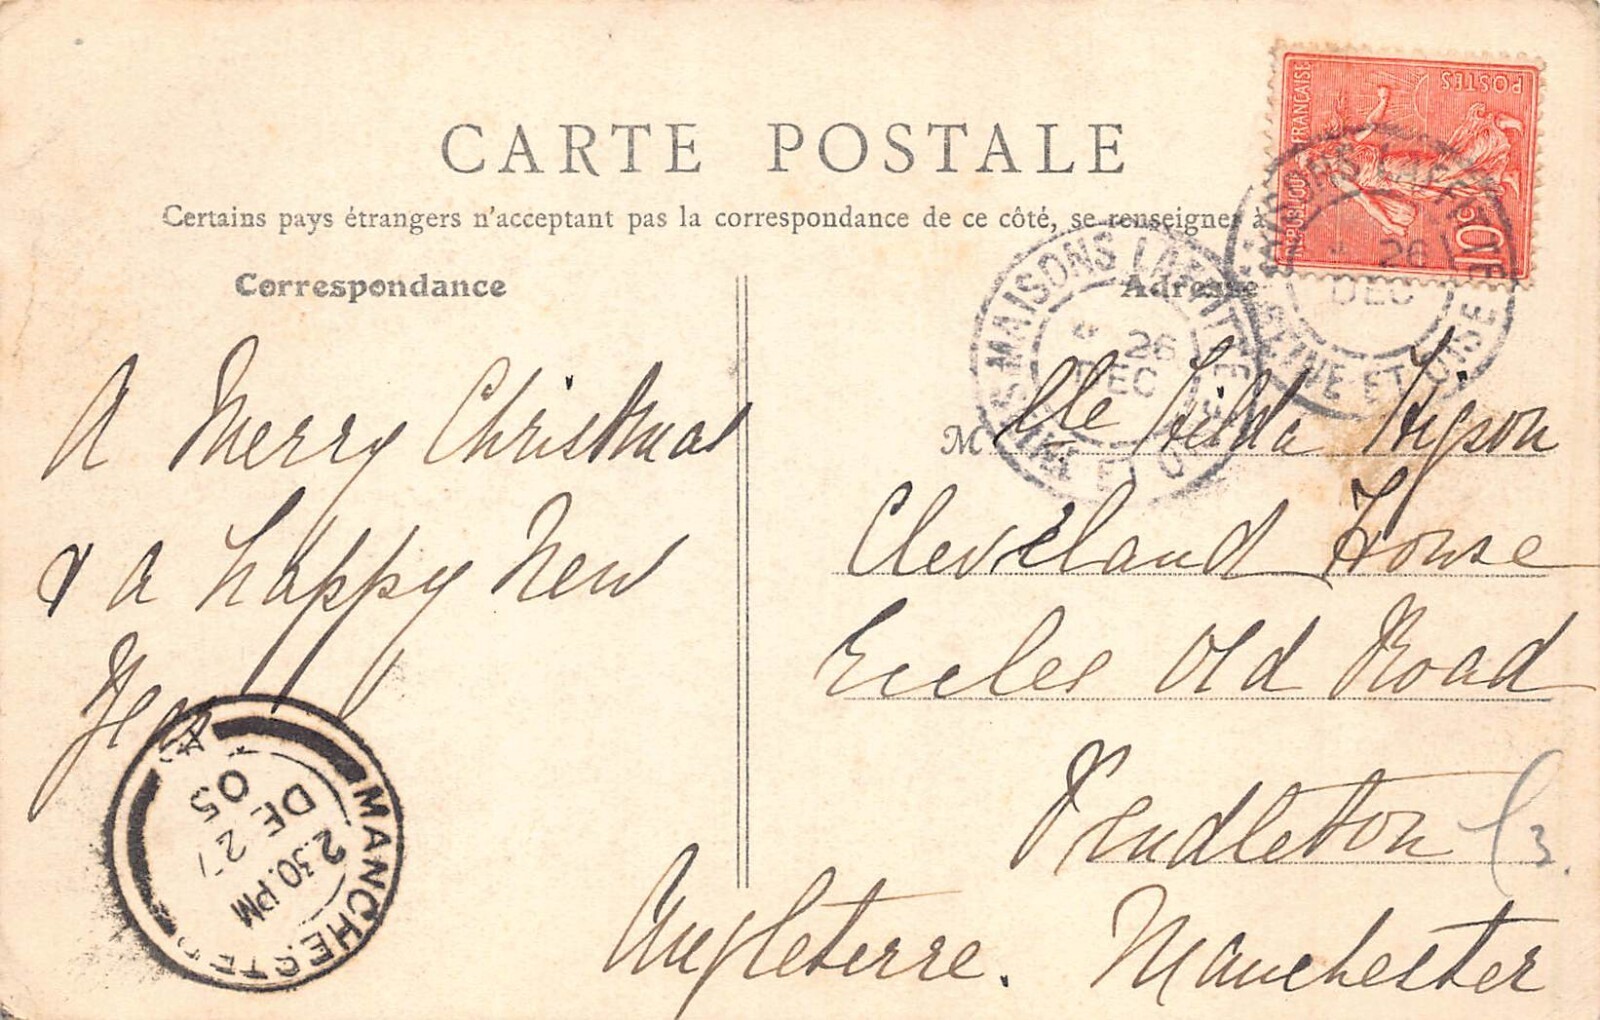 CARTE POSTALE
Certains pays étrangers n'acceptant pas la correspondance de ce côté, se renseigner à
Correspondance
Adresse
A Merry Christmas
& a happy New
Year
Mlle Hilda Higson
Cleveland House
Eccles Old Road
Pendleton
Manchester
Angleterre.
3.
RÉPUBLIQUE FRANÇAISE
POSTES
10c
MAISONS LAFFITTE
26
DEC
SEINE ET OISE
MAISONS LAFFITTE
26
DEC
SEINE ET OISE
MANCHESTER
2.30.PM
DE 27
05